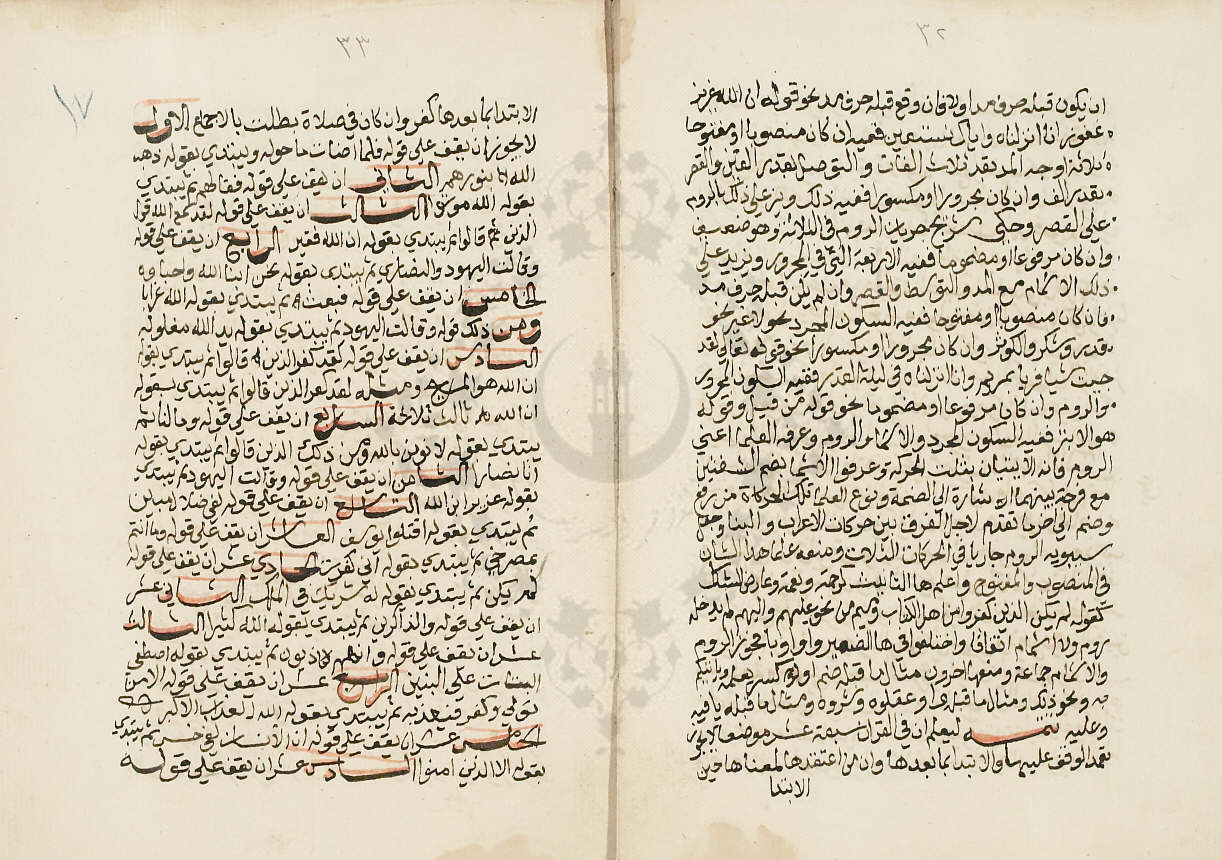 ٣٢
ان يكون قبله حرف مد اولا فان وقع قبله حرف مد نحو قوله ان الله عزيز
غفور انا انزلناه واياك نستعين ففيه ان كان منصوبا او مفتوحا
ثلاثة اوجه المد بقدر ثلاث الفات والتوسط بقدر الفين والقصر
بقدر الف وان كان مجرورا او مكسورا ففيه ذلك ويزيد على ذلك بالروم
على القصر وحكى جريان الروم في الثلاثة وهو ضعيف
وان كان مرفوعا او مضموما ففيه الاربعة التي في المجرور ويزيد على
ذلك الاشمام مع المد والتوسط والقصر وان لم يكن قبله حرف مد
فان كان منصوبا او مفتوحا ففيه السكون المجرد نحو لا غير نحو
قدير وشكر والكوثر وان كان مجرورا او مكسورا نحو قوله تعالى لقد
جيت شيا فريا بمريم وانا انزلناه في ليلة القدر ففيه السكون المجرد
والروم وان كان مرفوعا او مضموما نحو قوله من قبل وقوله
هو الابتر ففيه السكون المجرد والاشمام والروم وعرف العلما اعني
الروم فانه الاتيان بثلث الحركة وعرفوا الاشمام بضم الشفتين
مع فرجة بينهما اشارة الى الضمة ونوع العلما تلك الحركات من رفع
وضم الى اخر ما تقدم لاجل الفرق بين حركات الاعراب والبنا وجعل
سيبويه الروم جاريا في الحركات الثلاث ومنعه علما هذا الشان
في المنصوب والمفتوح واعلم ها التانيث كرحمة ونعمة وعارض الشكل
كقوله لم يكن الذين كفروا من اهل الكتاب وميم من نحو عليهم واليهم لم يدخله
روم ولا اشمام اتفاقا واختلفوا في ها الضمير واوا ويا فجوز الروم
والاشمام جماعة ومنعها اخرون مثال ما قبله ضم او كسر يعلمه وياتيكم
به ونحو ذلك ومثال ما قبله وعقلوه وشروه ومثال ما قبله يا فيه
وعليه تتمة ليعلم ان في القران سبعة عشر موضعا لا يجوز
تعمد الوقف عليها والابتدا بما بعدها وان من اعتقدها لمعناها حين
الابتدا
٣٣
١٧
الابتدا بما بعدها كفر وان كان في صلاة بطلت بالاجماع الاول
لا يجوز ان يقف على قوله فلما اضات ما حوله ويبتدي بقوله ذهب
الله بنورهم الثاني ان يقف على قوله فقال لهم ثم يبتدي
بقوله الله موتوا الثالث ان يقف على قوله لقد سمع الله قول
الذين قالوا ثم يبتدي بقوله ان الله فقير الرابع ان يقف على قوله
وقالت اليهود والنصارى ثم يبتدي بقوله نحن ابنا الله واحباوه
الخامس ان يقف على قوله فبعث ثم يبتدي بقوله الله غرابا
ومن ذلك قوله وقالت اليهود ثم يبتدي بقوله يد الله مغلولة
السادس ان يقف على قوله لقد كفر الذين قالوا ثم يبتدي بقوله
ان الله هو المسيح ومثله لقد كفر الذين قالوا ثم يبتدي بقوله
ان الله ثالث ثلاثة السابع ان يقف على قوله وما لنا ثم
يبتدي بقوله لا نومن بالله ومن ذلك الذين قالوا ثم يبتدي بقوله
انا نصارى الثامن ان يقف على قوله وقالت اليهود ثم يبتدي
بقوله عزير ابن الله التاسع ان يقف على قوله لفي ضلال مبين
ثم يبتدي بقوله اقتلوا يوسف العاشر ان يقف على قوله وما انتم
بمصرخي ثم يبتدي بقوله اني كفرت الحادي عشر ان يقف على قوله
ولم يكن ثم يبتدي بقوله له شريك في الملك الثاني عشر
ان يقف على قوله والذاكرين ثم يبتدي بقوله الله كثيرا الثالث
عشر ان يقف على قوله وانهم لكاذبون ثم يبتدي بقوله اصطفى
البنات على البنين الرابع عشر ان يقف على قوله الا من
تولى وكفر فيعذبه ثم يبتدي بقوله الله العذاب الاكبر
الخامس عشر ان يقف على قوله ان الانسان لفي خسر ثم يبتدي
بقوله الا الذين امنوا السادس عشر ان يقف على قوله